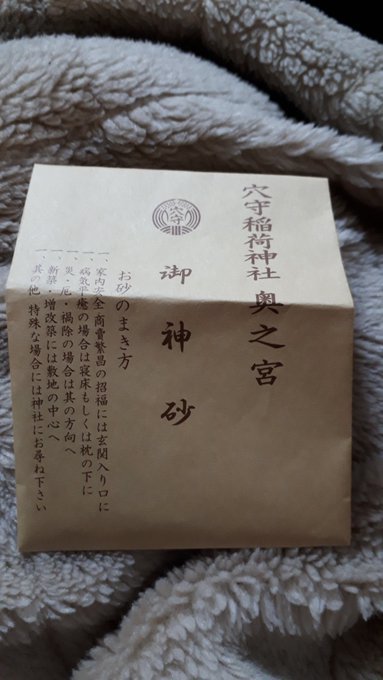 穴守稲荷神社 奥之宮
穴守
御神砂
お砂のまき方
一、家内安全・商売繁昌の招福には玄関入り口に
一、病気平癒の場合は寝床もしくは枕の下に
一、災・厄・禍除の場合は其の方向へ
一、新築・増改築には敷地の中心へ
一、其の他 特殊な場合には神社にお尋ね下さい